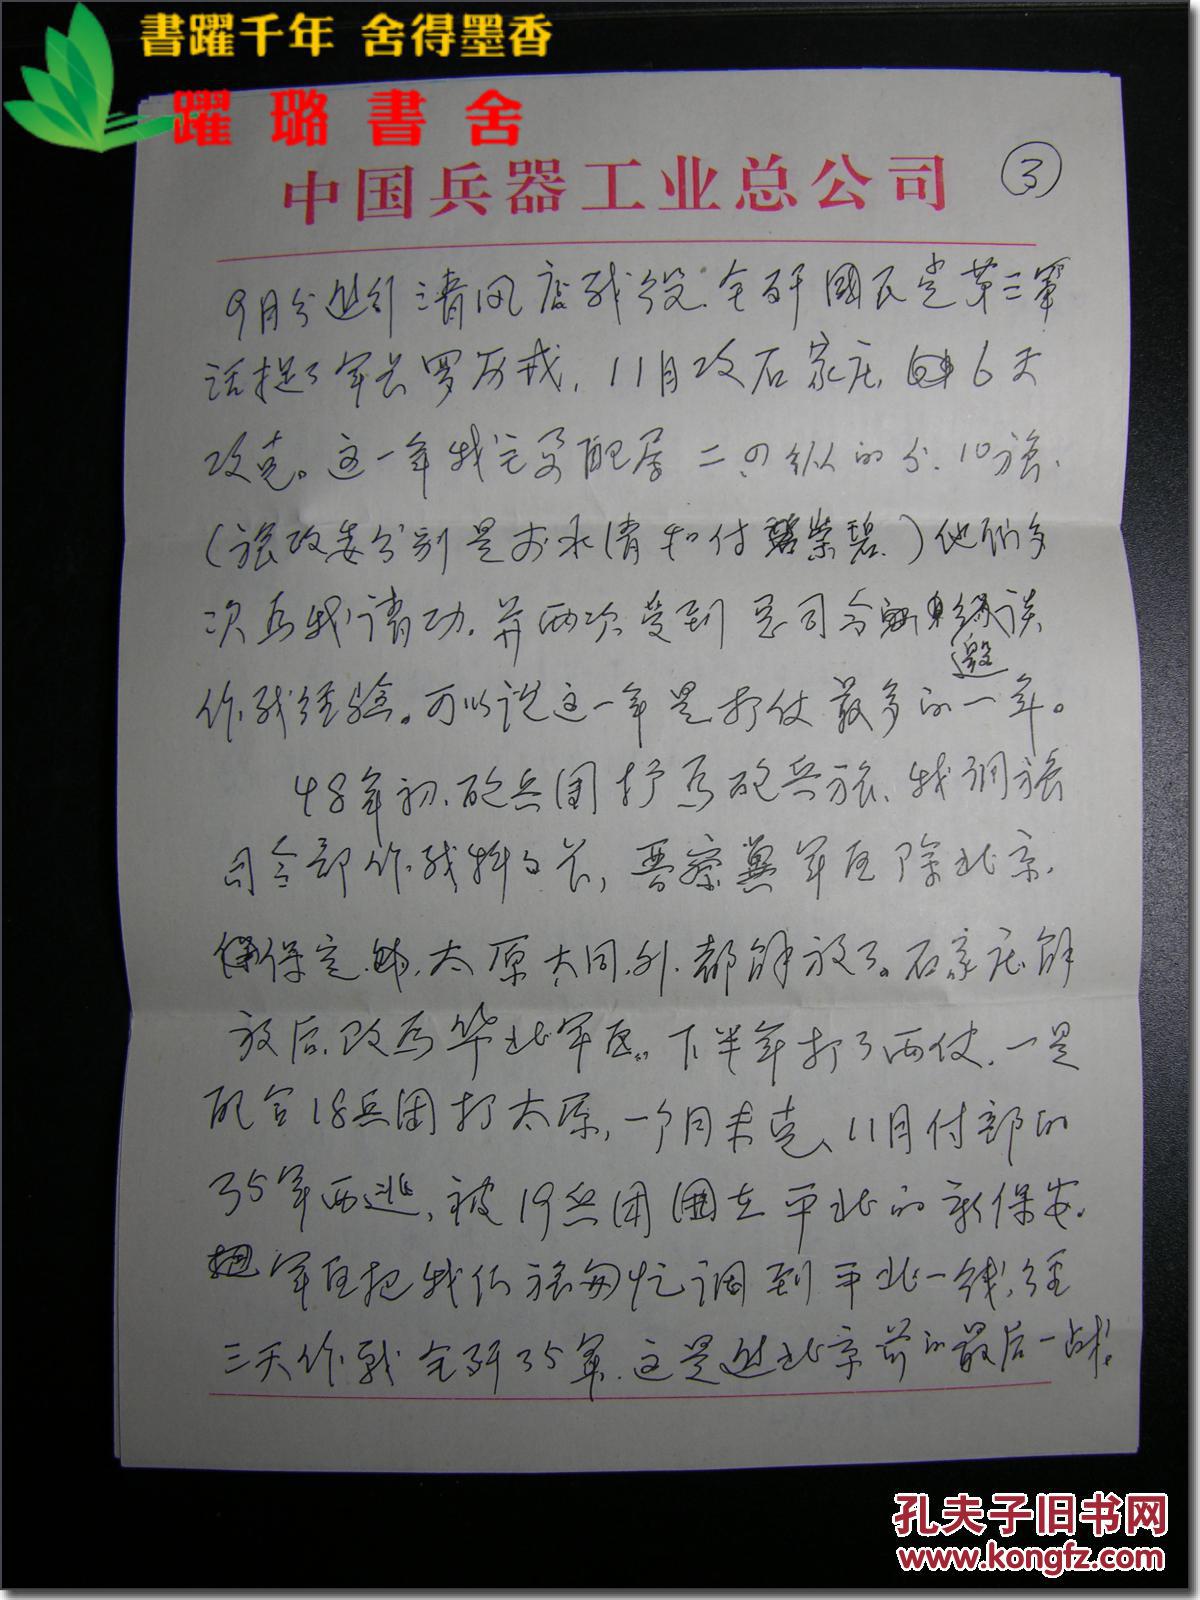 書躍千年 舍得墨香
躍璐書舍
中国兵器工业总公司
③
9月份进行清风店战役.全歼國民党第三軍
活捉了军长罗历戎,11月攻石家庄,6天
攻克。这一年我完全配属二、四纵的 10旅、
(旅政委分别是 永清和付崇碧)他们多
次为我请功.并两次受到总司令邀谈
作战经验。可以说这一年是打仗最多的一年。
48年初、砲兵团扩为砲兵旅、我调旅
司令部作战科科长,晋察冀军区除北京、
保定、太原大同、外、都解放了。石家庄解
放后,改为华北军区。下半年打了两仗、一是
配合18兵团打太原,一个月未克、11月付部的
35军西逃,被19兵团围在平北的新保安.
军区把我们旅匆忙调到平北一线,经
三天作战全歼35军.这是进北京前的最后一战.
孔夫子旧书网
www.kongfz.com